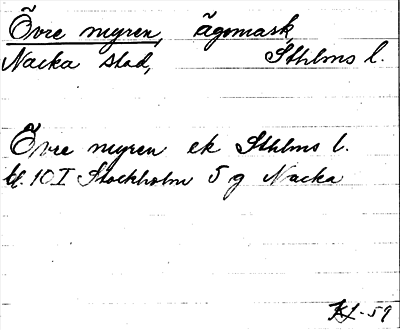 Övre myren, ägomark
Nacka stad, Sthlms l.
Övre myren ek Sthlms l.
bl. 10 I Stockholm 5 g Nacka
KL-59